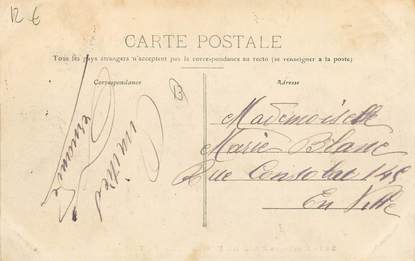 12 €
CARTE POSTALE
Tous les pays étrangers n'acceptent pas la correspondance au recto (se renseigner à la poste)
Correspondance
Adresse
Amitiés
Germaine
Mademoiselle
Marie Blanc
Rue Consolat 145
En Ville